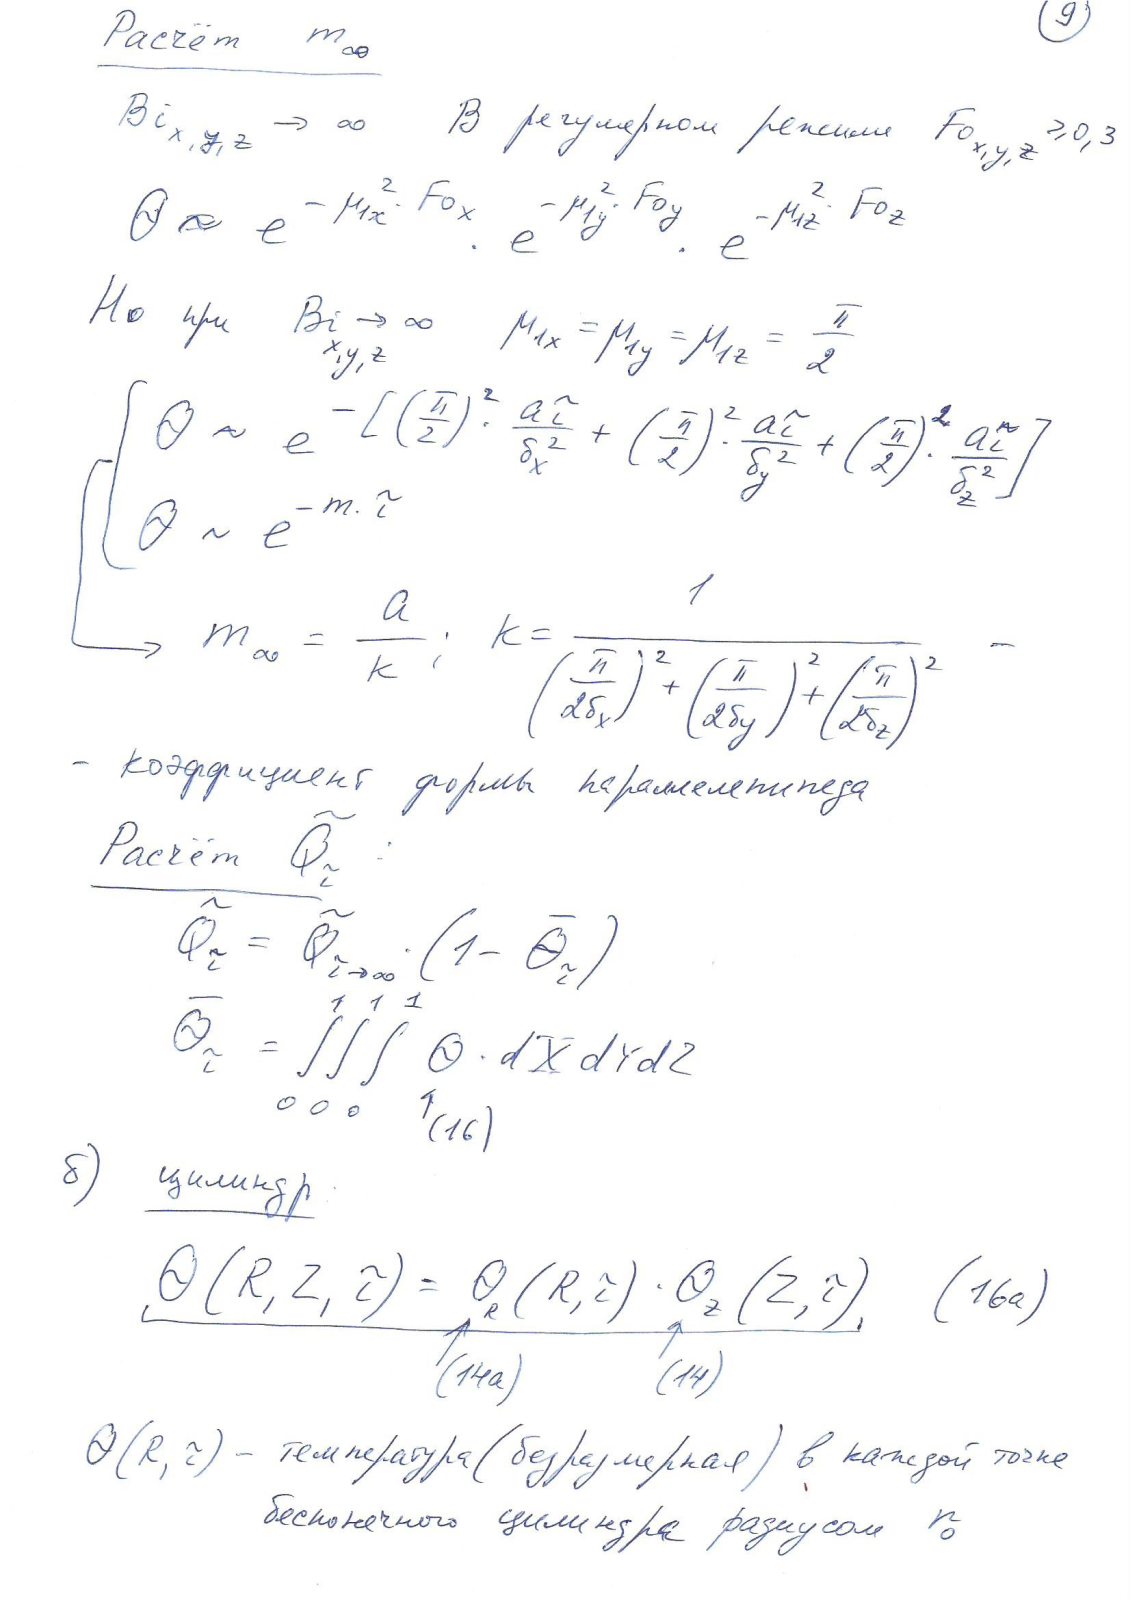 (9)
Расчёт m∞
Bi x,y,z → ∞ В регулярном режиме Fo x,y,z ≥ 0,3
Θ ≈ e^(-μ1x²·Fox) · e^(-μ1y²·Foy) · e^(-μ1z²·Foz)
Но при Bi x,y,z → ∞ μ1x = μ1y = μ1z = π/2
Θ ~ e^(-[(π/2)²·aτ/δx² + (π/2)²·aτ/δy² + (π/2)²·aτ/δz²])
Θ ~ e^(-m·τ)
→ m∞ = a/k ; k = 1/((π/2δx)² + (π/2δy)² + (π/2δz)²) –
– коэффициент формы параллелепипеда
Расчёт Q̃τ :
Q̃τ = Q̃τ→∞ · (1 - Θ̄τ)
Θ̄τ = ∫₀¹∫₀¹∫₀¹ Θ · dX dY dZ
↑(16)
б) цилиндр
Θ(R, Z, τ) = ΘR(R, τ) · ΘZ(Z, τ) (16а)
↑(14а) ↑(14)
Θ(R, τ) – температура (безразмерная) в каждой точке
бесконечного цилиндра радиусом r₀